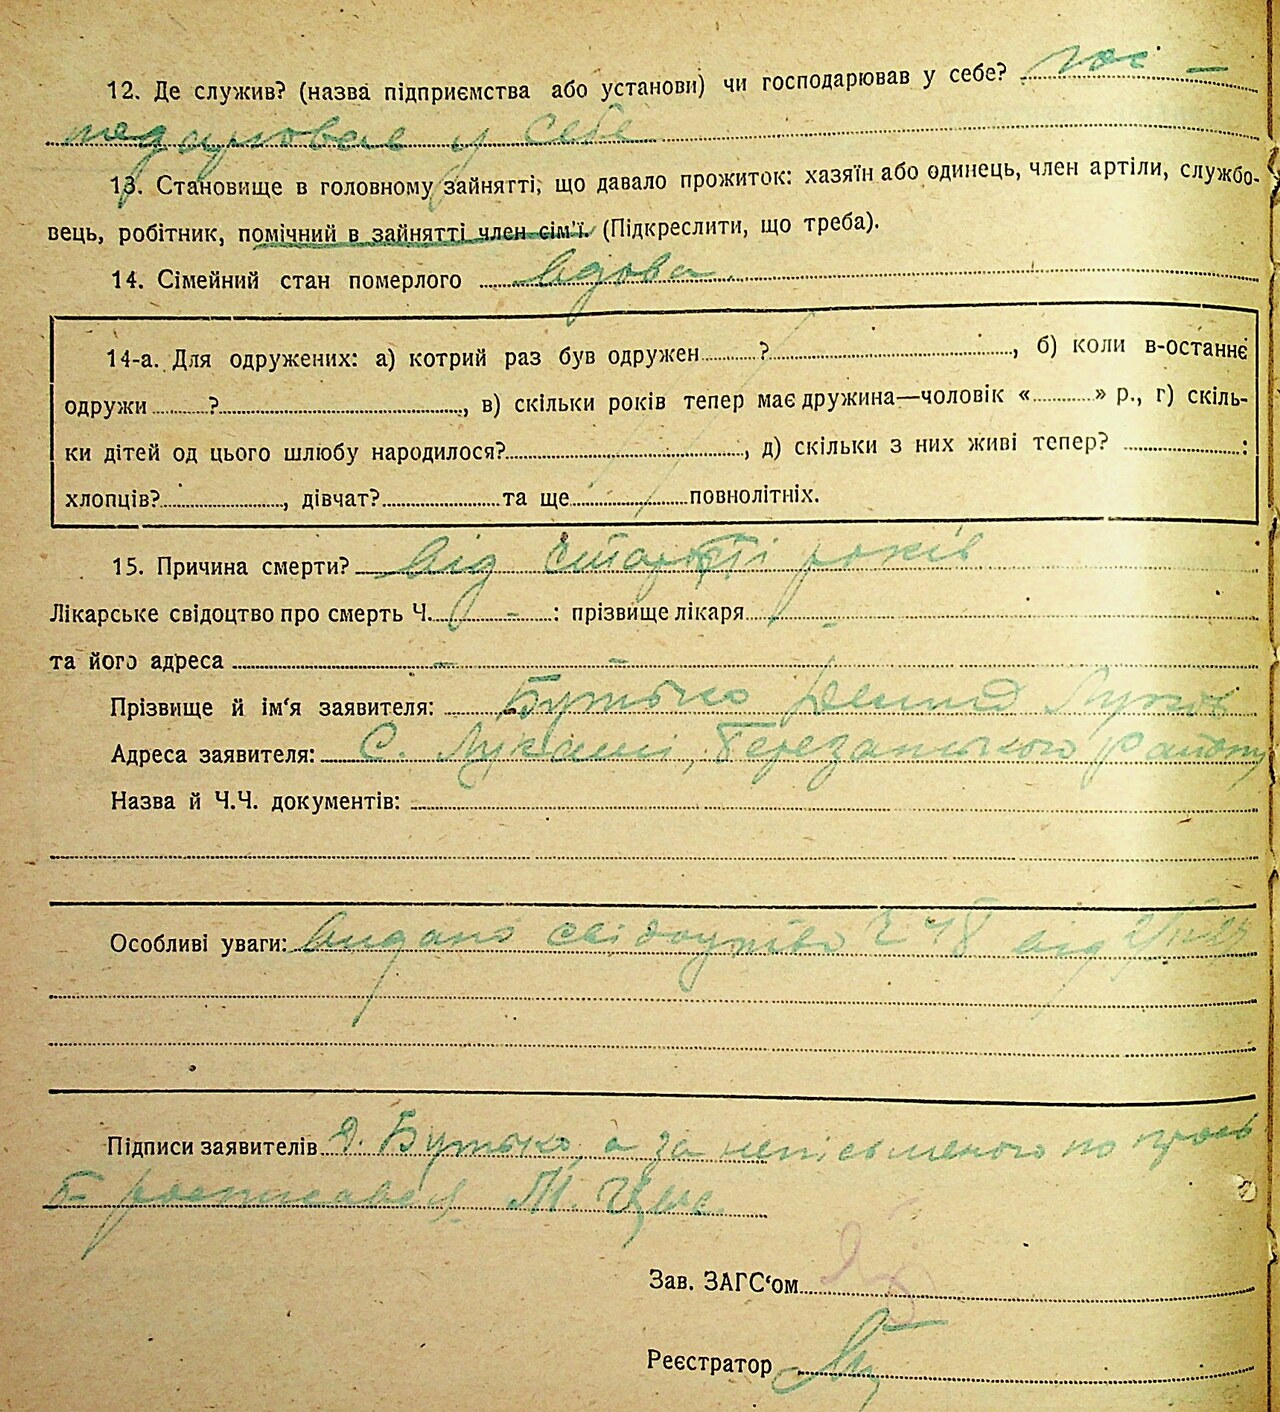 12. Де служив? (назва підприємства або установи) чи господарював у себе? гос-
подарював у себе
13. Становище в головному зайнятті, що давало прожиток: хазяїн або одинець, член артіли, службо-
вець, робітник, помічний в зайнятті член сім'ї. (Підкреслити, що треба).
14. Сімейний стан померлого вдова
14-а. Для одружених: а) котрий раз був одружен ? , б) коли в-останнє
одружи ? , в) скільки років тепер має дружина—чоловік « » р., г) скіль-
ки дітей од цього шлюбу народилося? , д) скільки з них живі тепер? :
хлопців? , дівчат? та ще повнолітніх.
15. Причина смерти? від старости років
Лікарське свідоцтво про смерть Ч. - : прізвище лікаря -
та його адреса - -
Прізвище й ім'я заявителя: Бутько Демид
Адреса заявителя: С. Лукаші, Березанського району
Назва й Ч.Ч. документів:
Особливі уваги: видано свідоцтво Ч 48 від
Підписи заявителів Д. Бутько, а за неписьменого по прозь
бі росписався М.
Зав. ЗАГС'ом
Реєстратор